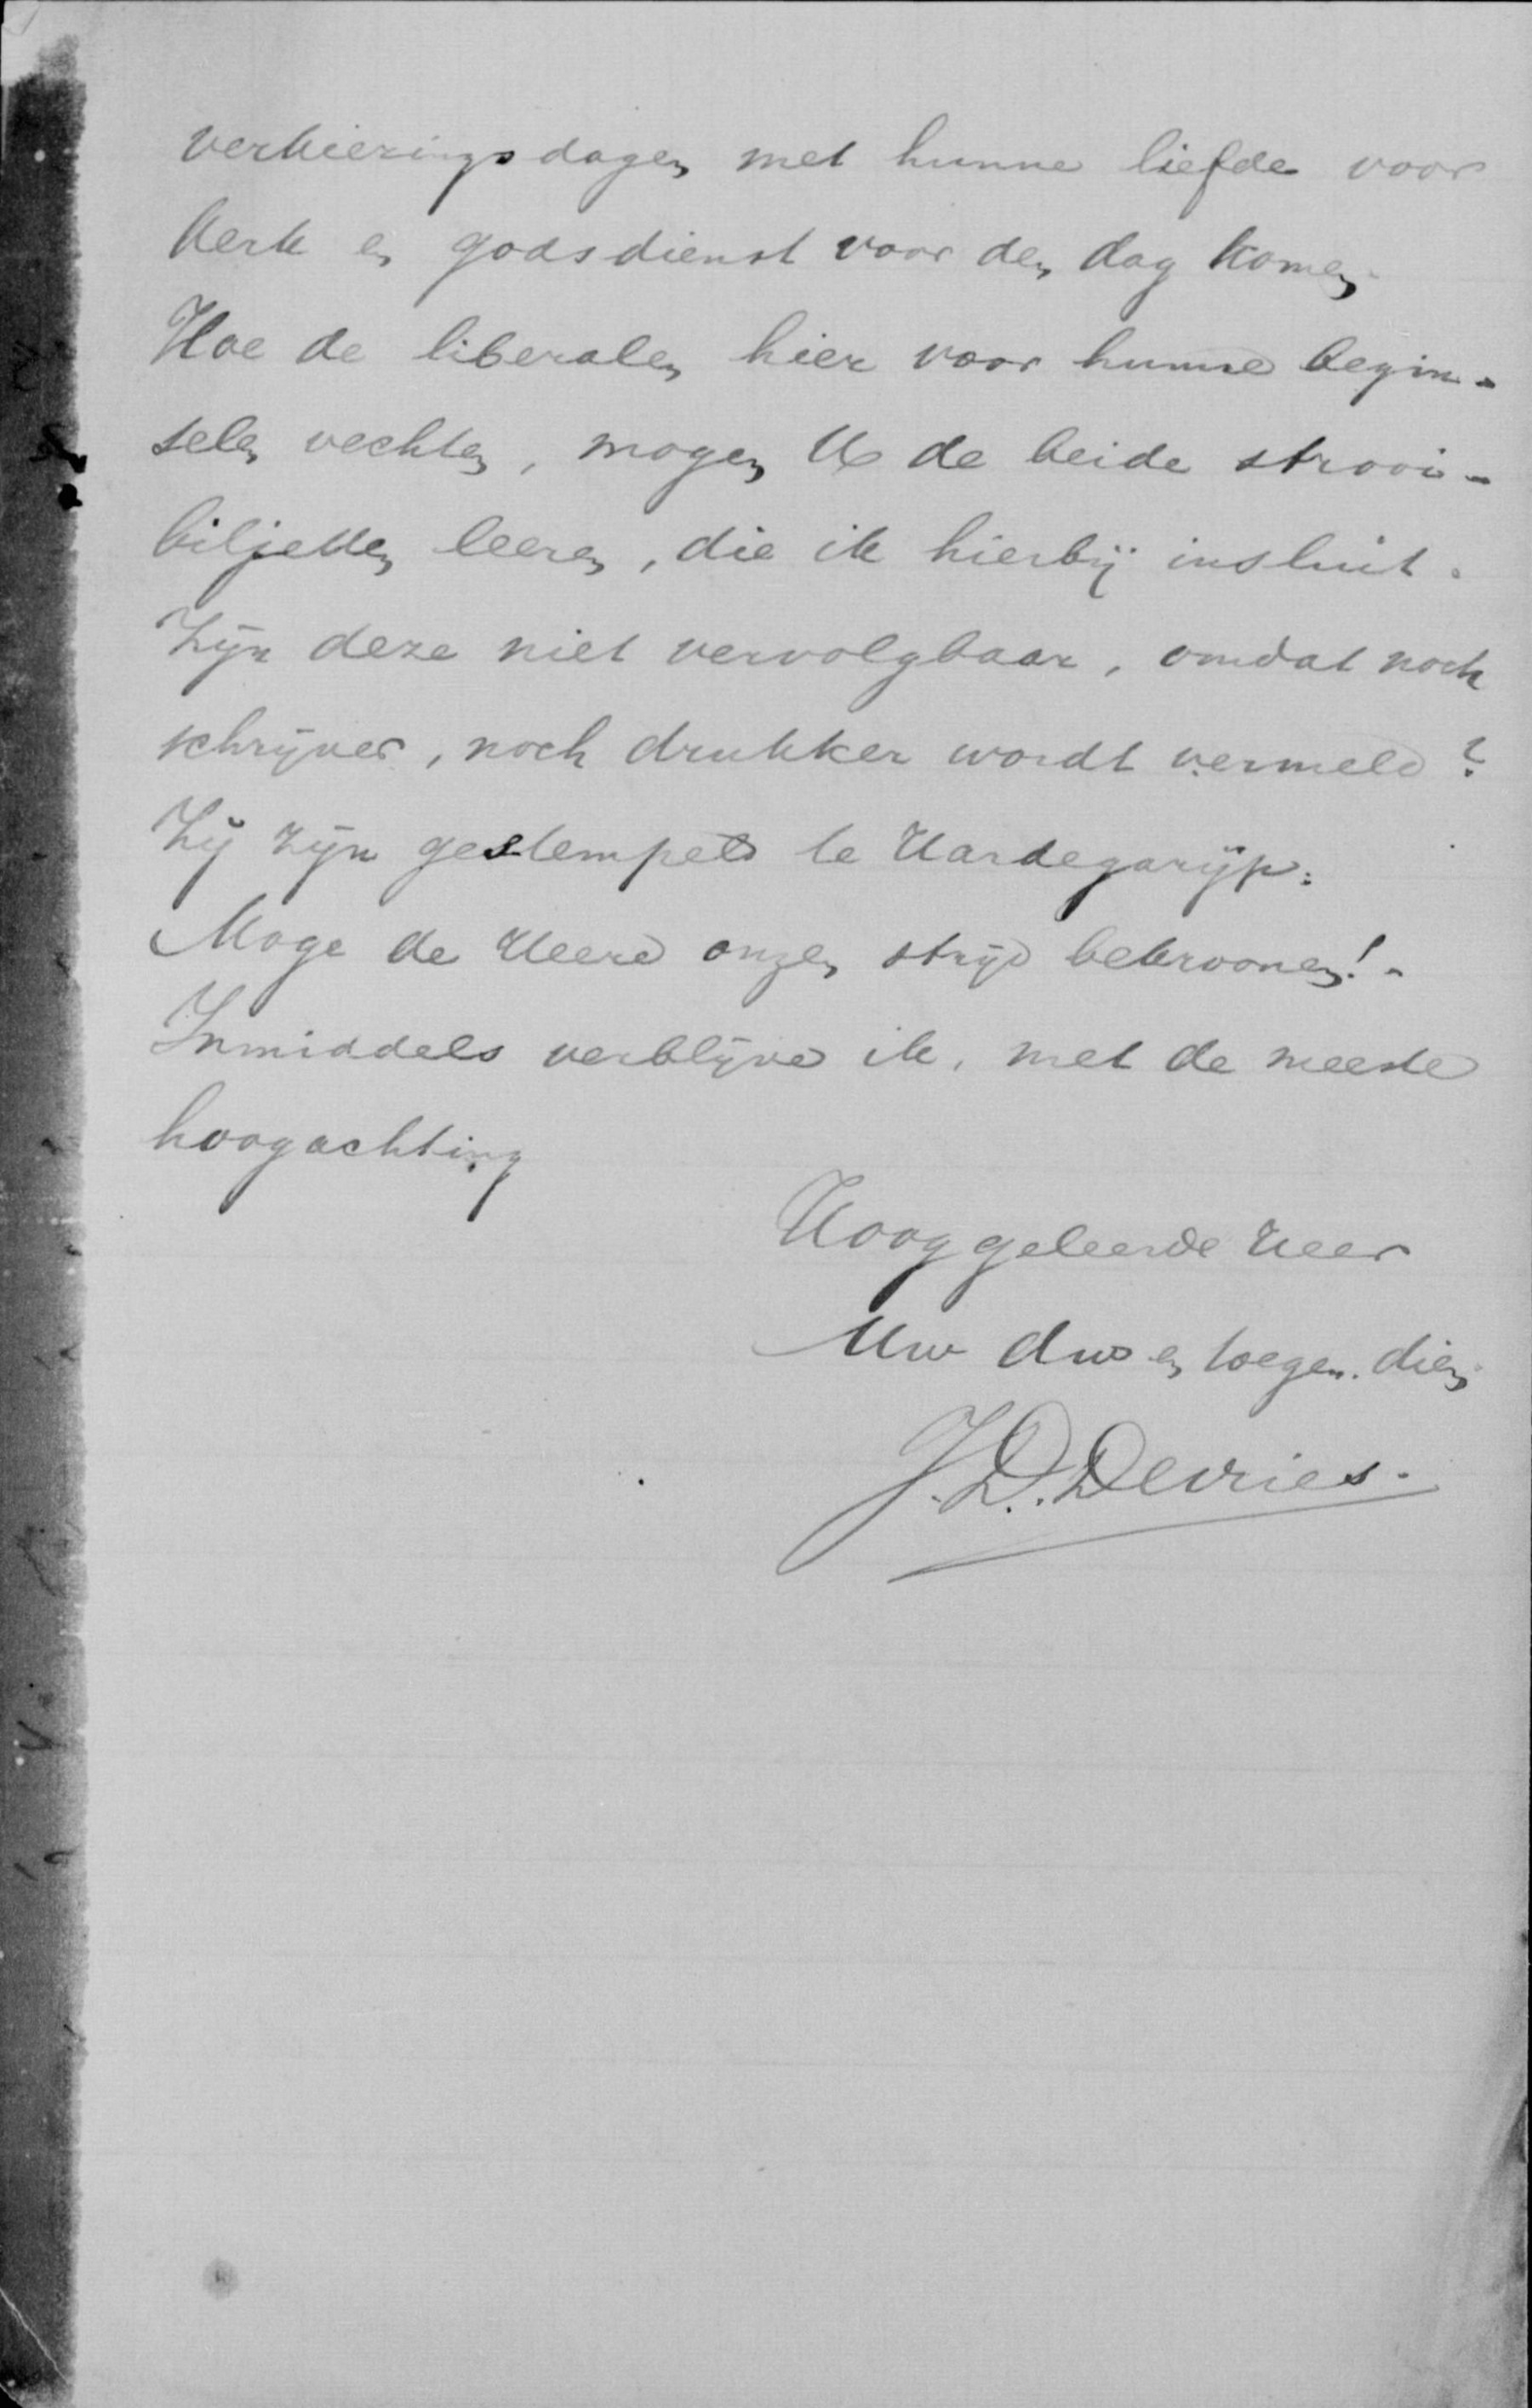 verkiezingsdagen met hunne liefde voor
kerk en godsdienst voor den dag komen.
Hoe de liberalen hier voor hunne begin-
selen vechten, mogen U de beide strooi-
biljetten leeren, die ik hierbij insluit.
Zijn deze niet vervolgbaar, omdat noch
schrijver, noch drukker wordt vermeld?
Zij zijn gestempeld te Hardegarijp.
Moge de Heere onzen strijd bekroonen! -
Inmiddels verblijve ik, met de meeste
hoogachting
Hooggeleerde Heer
Uw dw en toegen. dien.
J. D. De Vries.